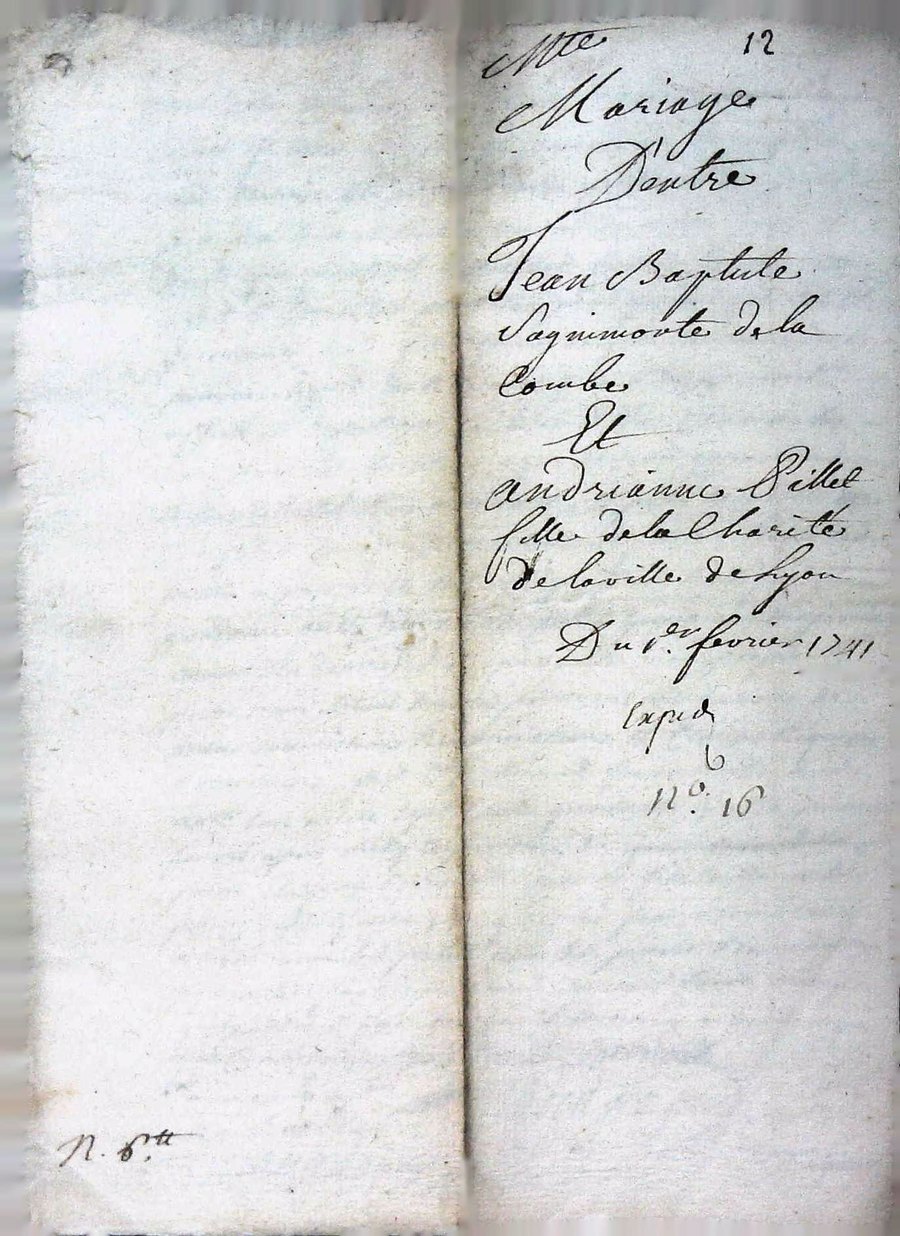 Mte 12
Mariage
D'entre
Jean Baptiste
Sagnimorte de la
Combe
Et
Andrianne Pillet
fille de la Charité
de la ville de Lyon
Du 1er. fevrier 1741
Exped
No. 16
N. 6.tt